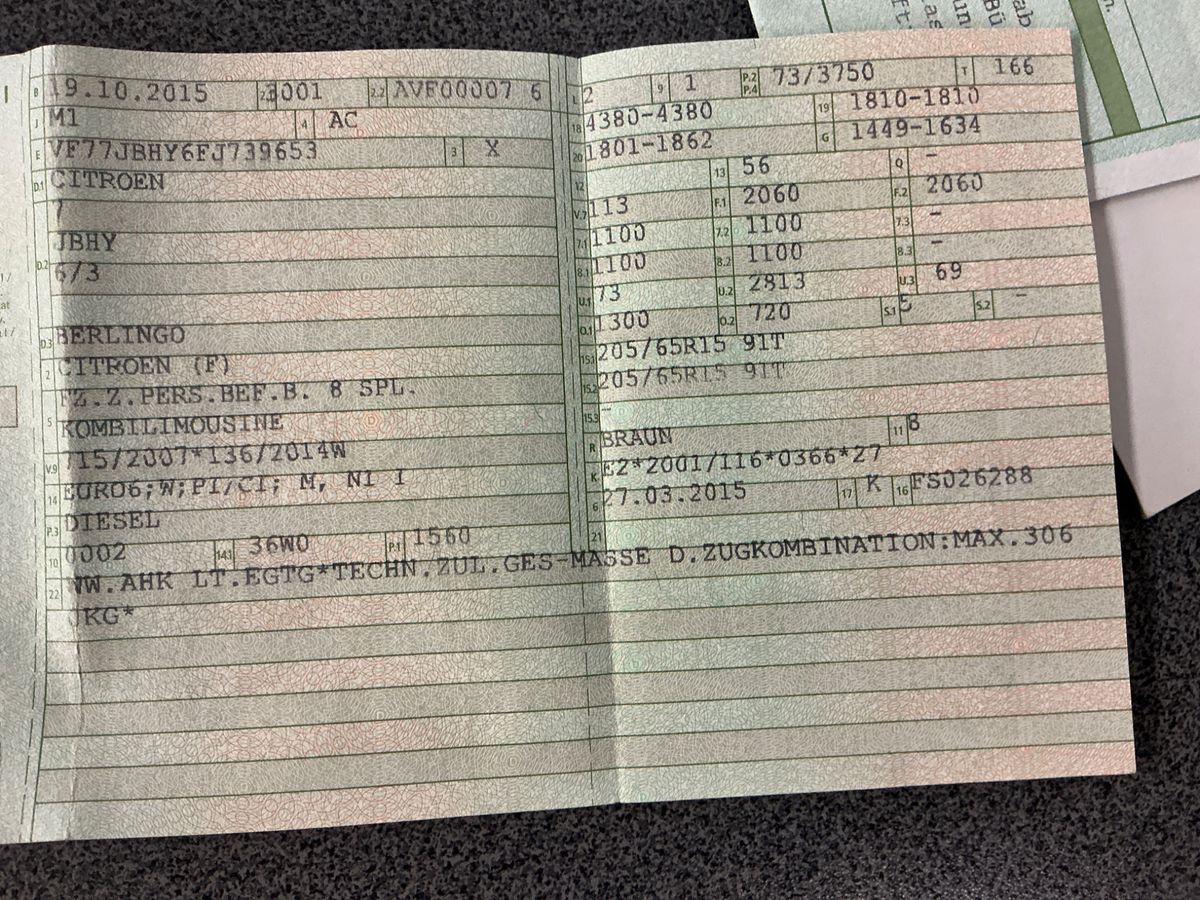 B 19.10.2015 2.1 3001 2.2 AVF00007 6
J M1 4 AC
E VF77JBHY6FJ739653 3 X
D.1 CITROEN
7
D.2 JBHY
6/3
D.3 BERLINGO
2 CITROEN (F)
FZ.Z.PERS.BEF.B. 8 SPL.
5 KOMBILIMOUSINE
V.9 715/2007*136/2014W
14 EURO6;W;PI/CI; M, N1 I
P.3 DIESEL
10 0002 14.1 36W0 P.1 1560
L 2 9 1 P.2 P.4 73/3750 T 166
18 4380-4380 19 1810-1810
20 1801-1862 G 1449-1634
12 13 56 Q -
V.7 113 F.1 2060 F.2 2060
7.1 1100 7.2 1100 7.3 -
8.1 1100 8.2 1100 8.3 -
U.1 73 U.2 2813 U.3 69
O.1 1300 O.2 720 S.1 5 S.2 -
15.1 205/65R15 91T
15.2 205/65R15 91T
15.3 -
R BRAUN 11 8
K E2*2001/116*0366*27
6 27.03.2015 17 K 16 FS026288
21
22 WW.AHK LT.EGTG*TECHN.ZUL.GES-MASSE D.ZUGKOMBINATION:MAX.306
0KG*